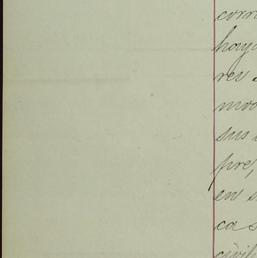 corr
haya
res
mo
sus
pre,
en s
cas
civil